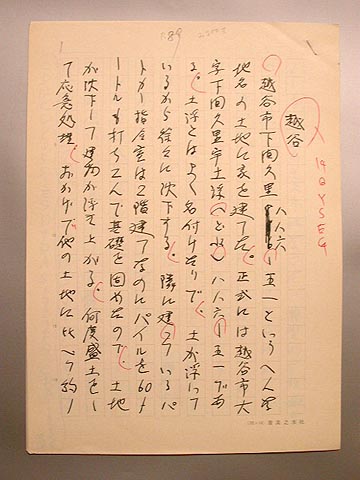 越谷
越谷市下間久里八八六の五一というへんな
地名の土地に家を建てた。正式には越谷市大
字下間久里字土浮(へどろ)八八六の五一であ
る。土浮とはよく名付けたりで、土が浮いて
いるから徐々に沈下する。隣に建っているパ
トカー指令室は2階建てなのにパイルを60メ
ートルも打ちこんで基礎を固めたので、土地
が沈下して建物が浮き上がる。何度盛土をし
て応急処理。おかげで他の土地に比べて約1